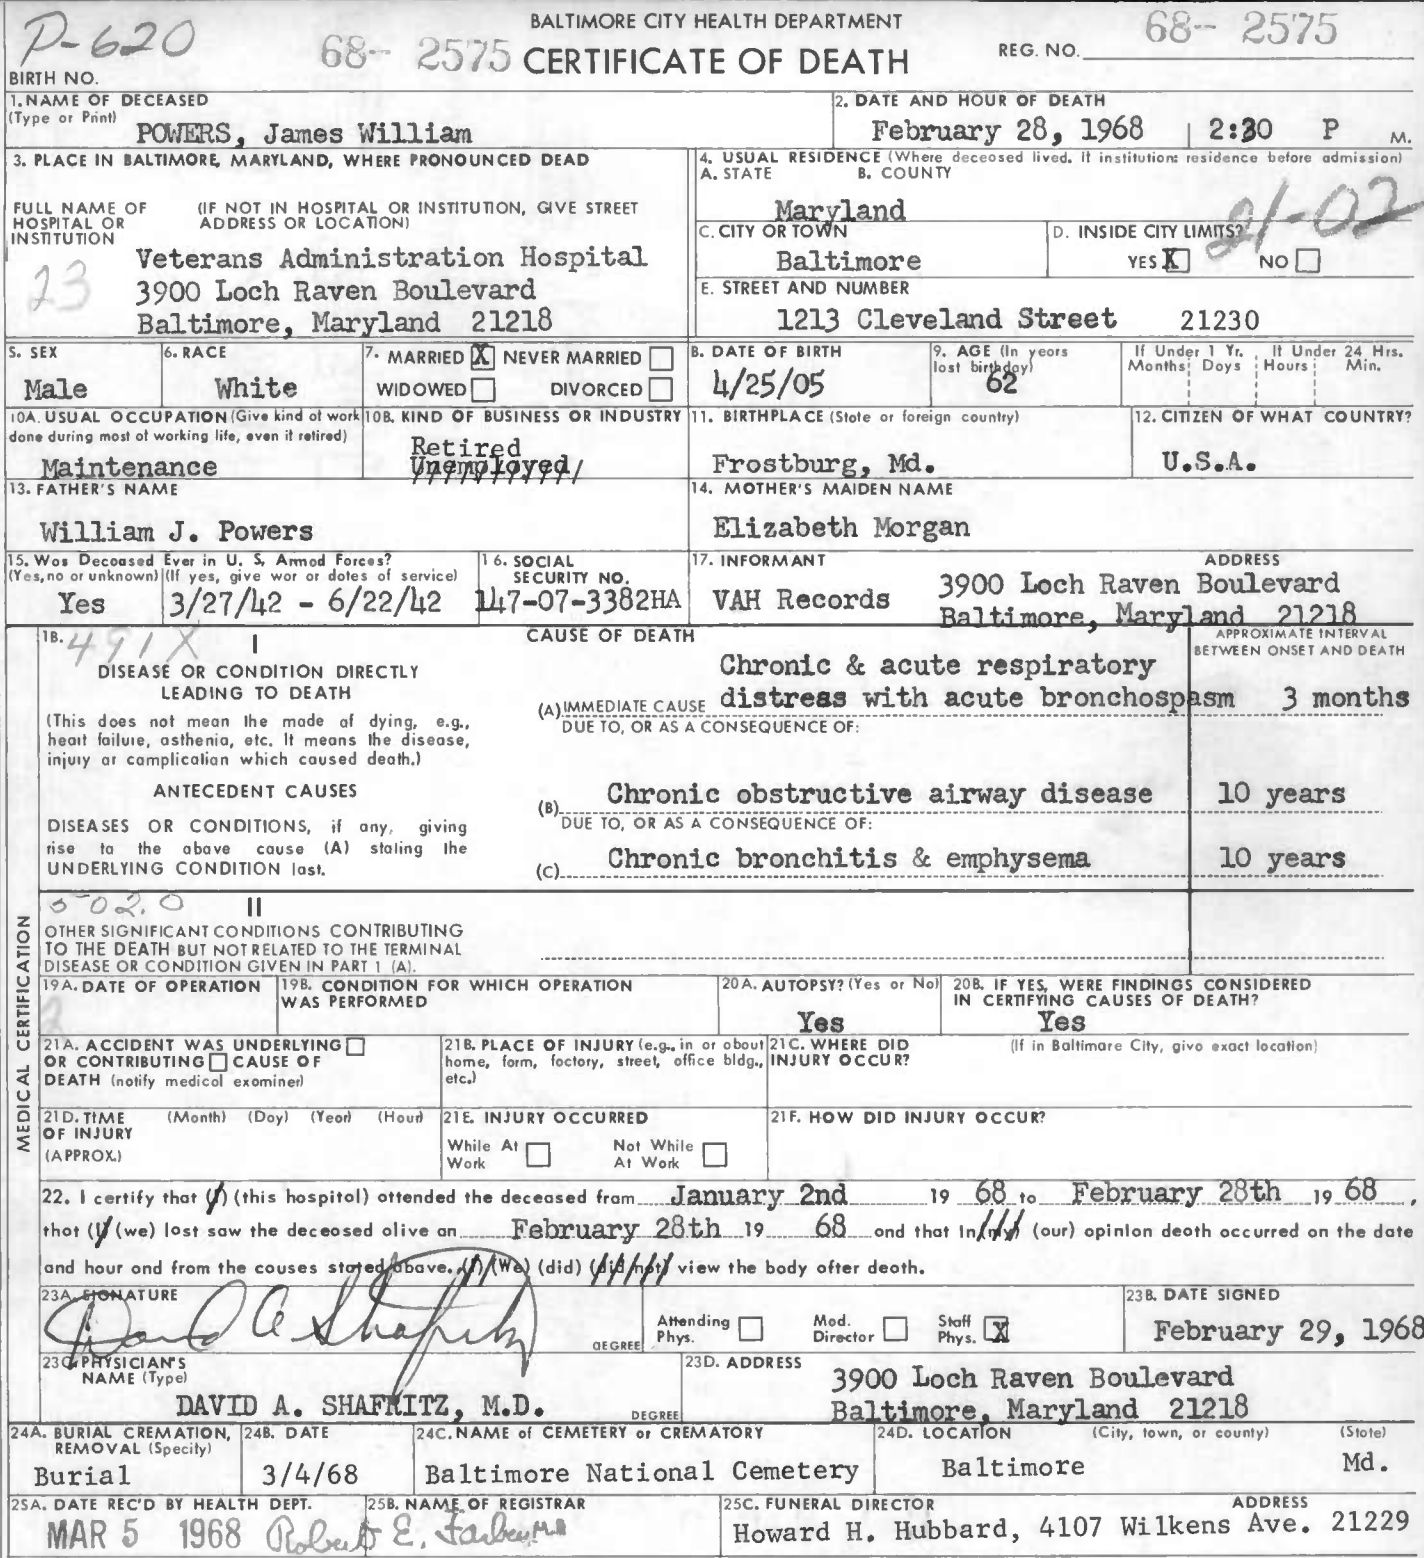 P-620
BALTIMORE CITY HEALTH DEPARTMENT
68-- 2575
68-- 2575 CERTIFICATE OF DEATH REG. NO.
BIRTH NO.
1. NAME OF DECEASED
(Type or Print)
POWERS, James William
2. DATE AND HOUR OF DEATH
February 28, 1968 2:30 P M.
3. PLACE IN BALTIMORE, MARYLAND, WHERE PRONOUNCED DEAD
FULL NAME OF HOSPITAL OR INSTITUTION
(IF NOT IN HOSPITAL OR INSTITUTION, GIVE STREET ADDRESS OR LOCATION)
23
Veterans Administration Hospital
3900 Loch Raven Boulevard
Baltimore, Maryland 21218
4. USUAL RESIDENCE (Where deceased lived. If institution: residence before admission)
A. STATE B. COUNTY
Maryland
21-02
C. CITY OR TOWN
Baltimore
D. INSIDE CITY LIMITS?
YES X NO
E. STREET AND NUMBER
1213 Cleveland Street 21230
5. SEX
Male
6. RACE
White
7. MARRIED X NEVER MARRIED
WIDOWED DIVORCED
8. DATE OF BIRTH
4/25/05
9. AGE (In years last birthday)
62
If Under 1 Yr. If Under 24 Hrs.
Months Days Hours Min.
10A. USUAL OCCUPATION (Give kind of work done during most of working life, even if retired)
Maintenance
10B. KIND OF BUSINESS OR INDUSTRY
Retired
Unemployed
11. BIRTHPLACE (State or foreign country)
Frostburg, Md.
12. CITIZEN OF WHAT COUNTRY?
U.S.A.
13. FATHER'S NAME
William J. Powers
14. MOTHER'S MAIDEN NAME
Elizabeth Morgan
15. Was Deceased Ever in U. S. Armed Forces?
(Yes, no or unknown) (If yes, give war or dates of service)
Yes 3/27/42 - 6/22/42
16. SOCIAL SECURITY NO.
147-07-3382HA
17. INFORMANT ADDRESS
VAH Records 3900 Loch Raven Boulevard
Baltimore, Maryland 21218
18. 491X I
CAUSE OF DEATH
APPROXIMATE INTERVAL BETWEEN ONSET AND DEATH
DISEASE OR CONDITION DIRECTLY
LEADING TO DEATH
(This does not mean the mode of dying, e.g.,
heart failure, asthenia, etc. It means the disease,
injury or complication which caused death.)
Chronic & acute respiratory
(A) IMMEDIATE CAUSE distress with acute bronchospasm 3 months
DUE TO, OR AS A CONSEQUENCE OF:
ANTECEDENT CAUSES
DISEASES OR CONDITIONS, if any, giving
rise to the above cause (A) stating the
UNDERLYING CONDITION last.
(B) Chronic obstructive airway disease 10 years
DUE TO, OR AS A CONSEQUENCE OF:
(C) Chronic bronchitis & emphysema 10 years
MEDICAL CERTIFICATION
502.0 II
OTHER SIGNIFICANT CONDITIONS CONTRIBUTING
TO THE DEATH BUT NOT RELATED TO THE TERMINAL
DISEASE OR CONDITION GIVEN IN PART 1 (A).
19A. DATE OF OPERATION
19B. CONDITION FOR WHICH OPERATION WAS PERFORMED
20A. AUTOPSY? (Yes or No)
Yes
20B. IF YES, WERE FINDINGS CONSIDERED IN CERTIFYING CAUSES OF DEATH?
Yes
21A. ACCIDENT WAS UNDERLYING
OR CONTRIBUTING CAUSE OF
DEATH (notify medical examiner)
21B. PLACE OF INJURY (e.g., in or about
home, farm, factory, street, office bldg.,
etc.)
21C. WHERE DID INJURY OCCUR?
(If in Baltimore City, give exact location)
21D. TIME OF INJURY (APPROX.)
(Month) (Day) (Year) (Hour)
21E. INJURY OCCURRED
While At Work Not While At Work
21F. HOW DID INJURY OCCUR?
22. I certify that (I) (this hospital) attended the deceased from January 2nd 19 68 to February 28th 19 68,
that (I) (we) last saw the deceased alive on February 28th 19 68 and that in (my) (our) opinion death occurred on the date
and hour and from the causes stated above. (I) (We) (did) (did not) view the body after death.
23A. SIGNATURE
David A Shafritz
DEGREE
Attending Phys. Med. Director Staff Phys. X
23B. DATE SIGNED
February 29, 1968
23C. PHYSICIAN'S NAME (Type)
DAVID A. SHAFRITZ, M.D. DEGREE
23D. ADDRESS
3900 Loch Raven Boulevard
Baltimore, Maryland 21218
24A. BURIAL CREMATION, REMOVAL (Specify)
Burial
24B. DATE
3/4/68
24C. NAME of CEMETERY or CREMATORY
Baltimore National Cemetery
24D. LOCATION (City, town, or county) (State)
Baltimore Md.
25A. DATE REC'D BY HEALTH DEPT.
MAR 5 1968
25B. NAME OF REGISTRAR
Robert E. Farber MD
25C. FUNERAL DIRECTOR ADDRESS
Howard H. Hubbard, 4107 Wilkens Ave. 21229